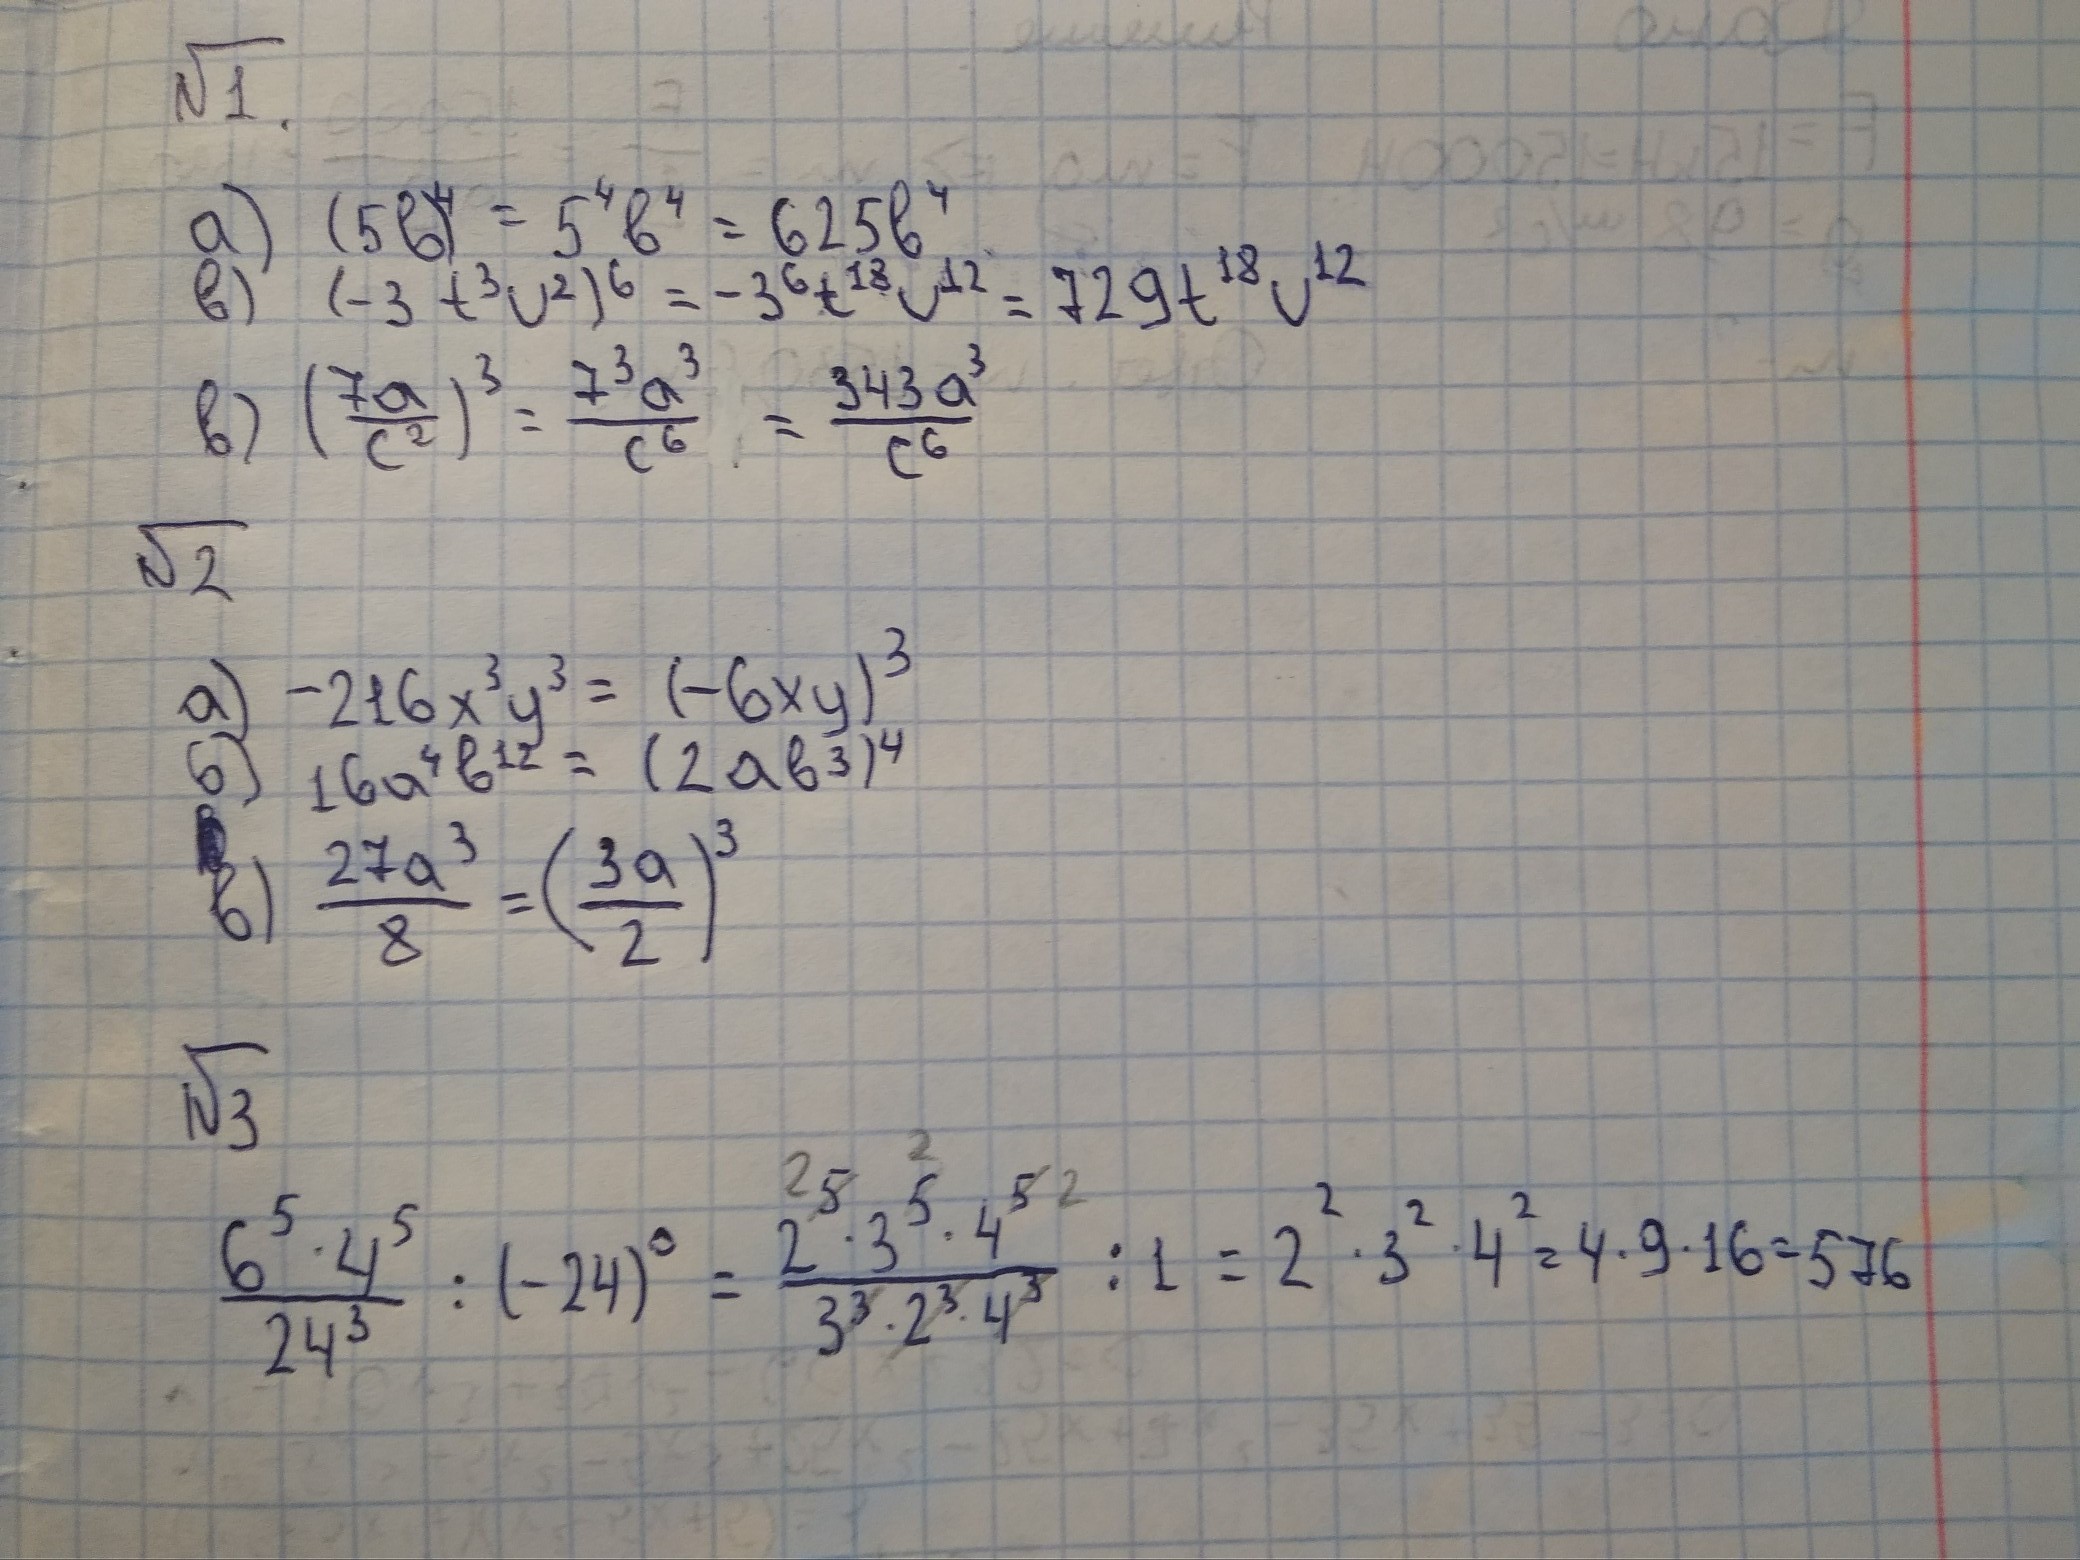 №1.
а) (5b)⁴ = 5⁴b⁴ = 625b⁴
б) (-3 t³υ²)⁶ = -3⁶t¹⁸υ¹² = 729t¹⁸υ¹²
в) (7a/c²)³ = 7³a³/c⁶ = 343a³/c⁶
№2
а) -216x³y³ = (-6xy)³
б) 16a⁴b¹² = (2ab³)⁴
в) 27a³/8 = (3a/2)³
№3
6⁵·4⁵/24³ : (-24)⁰ = 2⁵·3⁵·4⁵/3³·2³·4³ : 1 = 2²·3²·4² = 4·9·16 = 576